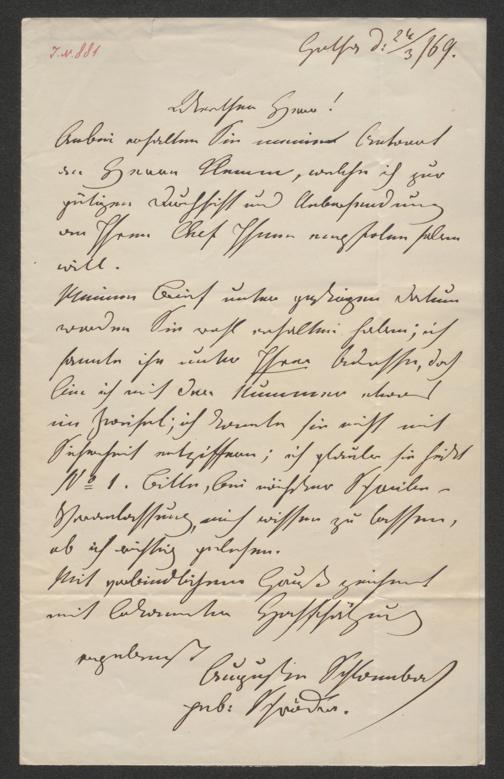 J.N. 881
Gotha d: 24/3 /69.
Werther Herr!
Anbei erhalten Sie meine Antwort
an Herrn Klemm, welche ich zur
gütigen Durchsicht und Uebersendung
an Ihren Chef Ihnen empfohlen haben
will.
Meinen Brief unter gestrigen Datum
werden Sie wohl erhalten haben; ich
sandte ihn unter Ihrer Adresse, doch
bin ich mit der Nummer etwas
im Zweifel; ich konnte sie nicht mit
Sicherheit entziffern; ich glaube sie heißt
No 1. Bitte, bei nächster Schreibe-
Veranlassung, mich wissen zu lassen,
ob ich richtig gelesen.
Mit verbindlichem Gruß zeichnet
mit bekannter Hochschätzung
ergebenst
Auguste
geb: Schröder.